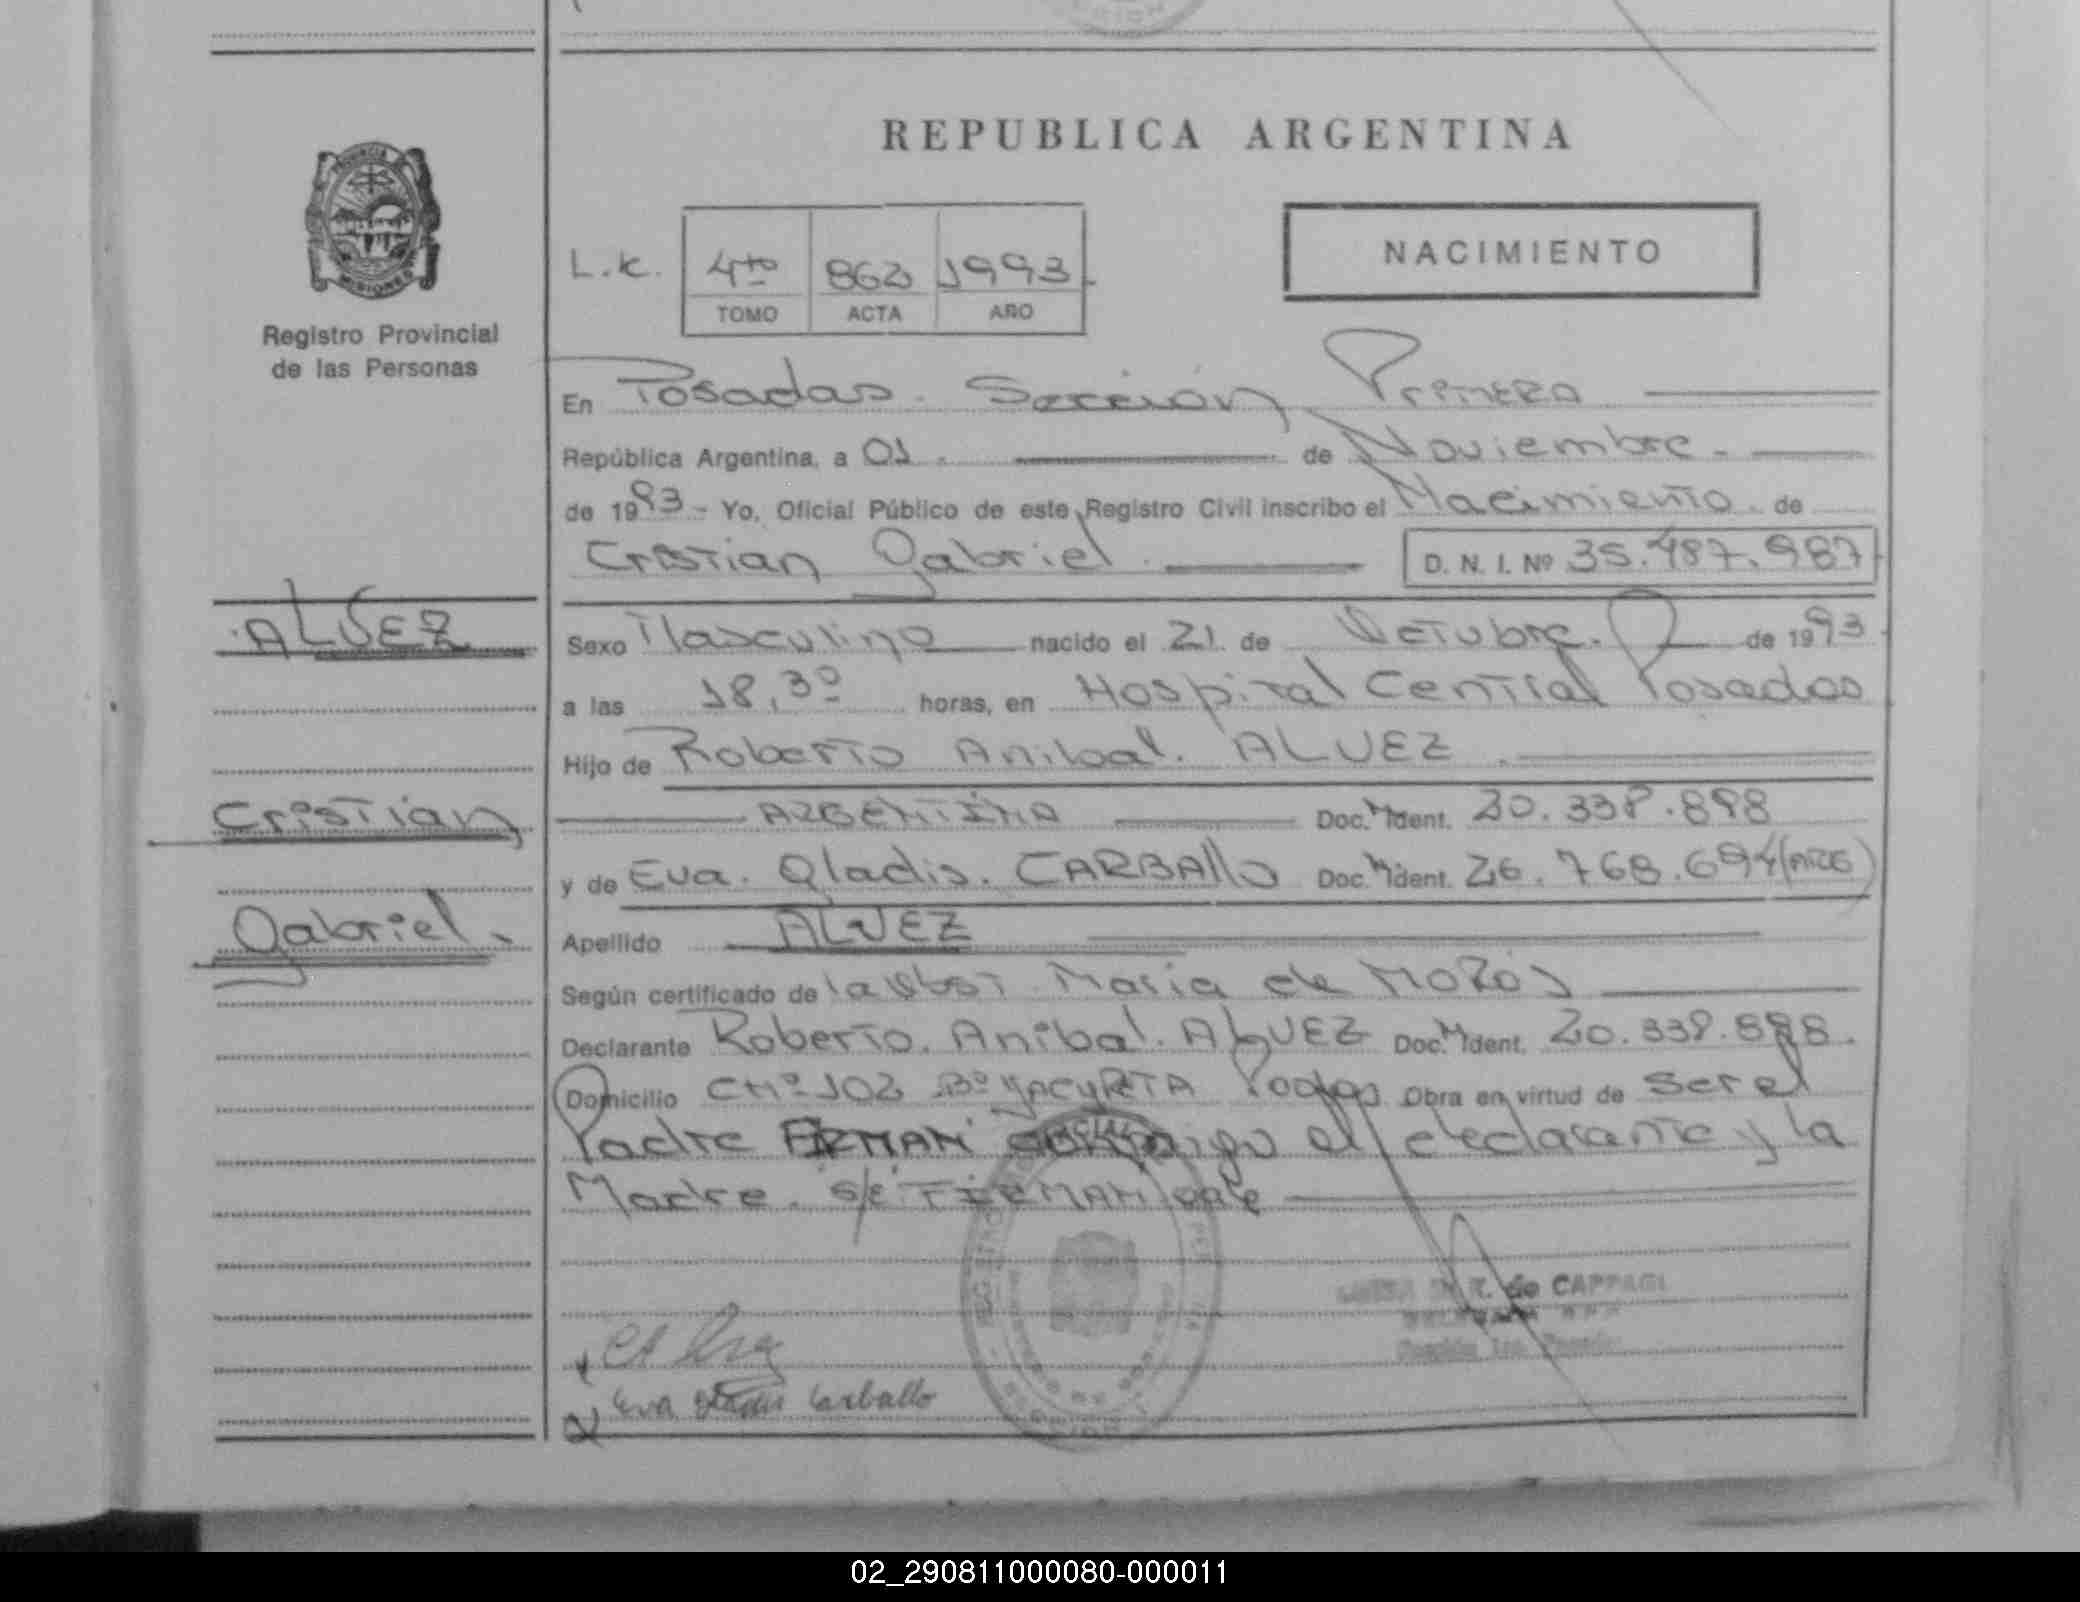 REPUBLICA ARGENTINA
NACIMIENTO
PROVINCIA
MISIONES
Registro Provincial
de las Personas
L.K. 4to 862 1993
TOMO ACTA AÑO
En Posadas. Sección Primera
República Argentina, a 01. de Noviembre.
de 1993 - Yo, Oficial Público de este Registro Civil inscribo el Nacimiento. de
Cristian Gabriel. D. N. I. Nº 35.487.987
ALVEZ
Cristian
Gabriel.
Sexo Masculino nacido el 21. de Octubre. de 1993
a las 18,30 horas, en Hospital Central Posadas
Hijo de Roberto Anibal. ALVEZ.
ARGENTINA Doc. Ident. 20.338.898
y de Eva. Gladis. CARBAllo Doc. Ident. 26.768.694 (ARG)
Apellido ALVEZ
Según certificado de la Obst Maria de
Declarante Roberto. Anibal. ALVEZ Doc. Ident. 20.338.898.
Domicilio CHº 102 Bº YACYRETA Obra en virtud de ser el
Padre FIRMAN el declarante y la
Madre. S/E FIRMAN vale
de CAPPAGL
Eva Gladis Carballo
02_290811000080-000011